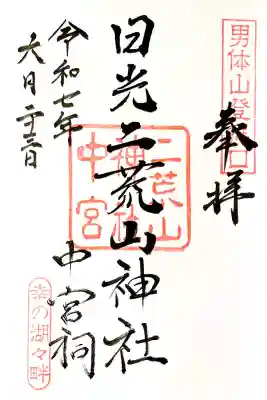 男体山登拝口
奉拝
日光二荒山神社
中宮祠
二荒山
神社
中宮
令和七年
六月二十三日
幸の湖々畔